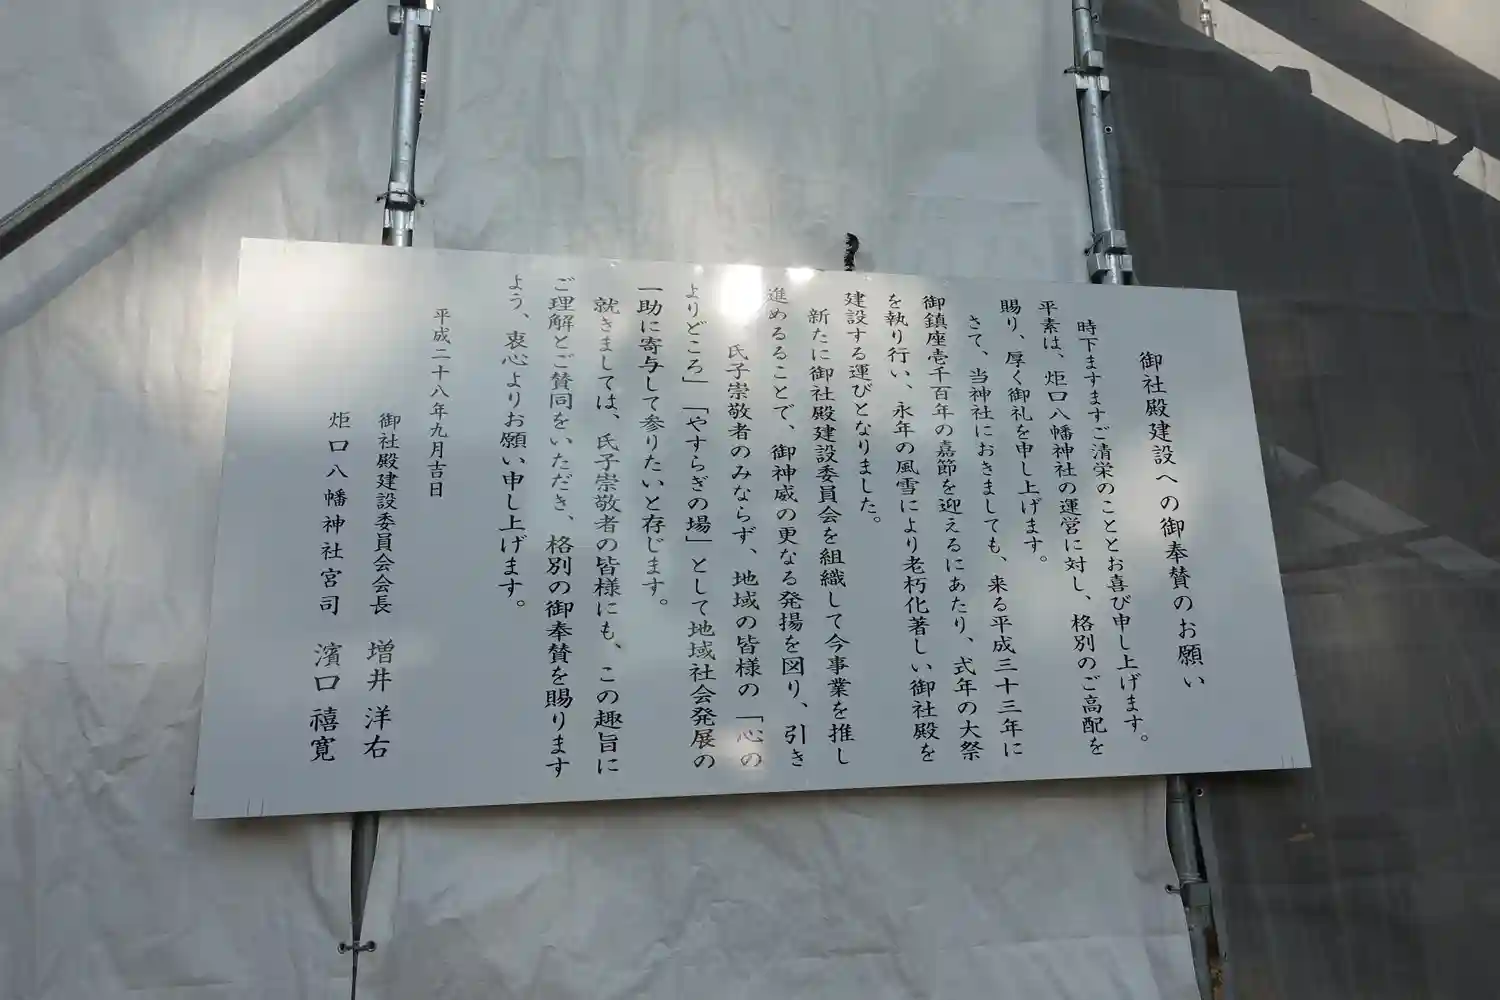 御社殿建設への御奉賛のお願い
時下ますますご清栄のこととお喜び申し上げます。
平素は、炬口八幡神社の運営に対し、格別のご高配を
賜り、厚く御礼を申し上げます。
さて、当神社におきましても、来る平成三十三年に
御鎮座壱千百年の嘉節を迎えるにあたり、式年の大祭
を執り行い、永年の風雪により老朽化著しい御社殿を
建設する運びとなりました。
新たに御社殿建設委員会を組織して今事業を推し
進めるることで、御神威の更なる発揚を図り、引き
氏子崇敬者のみならず、地域の皆様の「心の
よりどころ」「やすらぎの場」として地域社会発展の
一助に寄与して参りたいと存じます。
就きましては、氏子崇敬者の皆様にも、この趣旨に
ご理解とご賛同をいただき、格別の御奉賛を賜ります
よう、衷心よりお願い申し上げます。
平成二十八年九月吉日
御社殿建設委員会会長 増井 洋右
炬口八幡神社宮司 濱口 禧寛